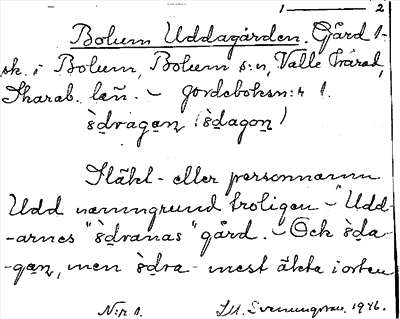 1 — 2
Bolum Uddagården. Gård 1-
sk. i Bolum, Bolum s:n, Valle härad,
Skarab. län. – Jordeboksn:r 1.
s̀dragan (s̀dagon)
Släkt- eller personnamn
Udd namngrund troligen – "Udd-
-arnes "s̀dranas" gård. – Och s̀da-
-gan, men s̀dra- mest äkta i orten
N:r 1.
Svenungsson. 1946.